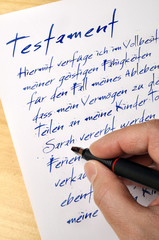 Testament
Hiermit verfüge ich im Vollbesit
meiner geistigen Fähigkeiten
für den Fall meines Ableben
dass mein Vermögen zu g
Teilen an meine Kinder To
Sarah vererbt werden
Ferien
verka
ebent
meine